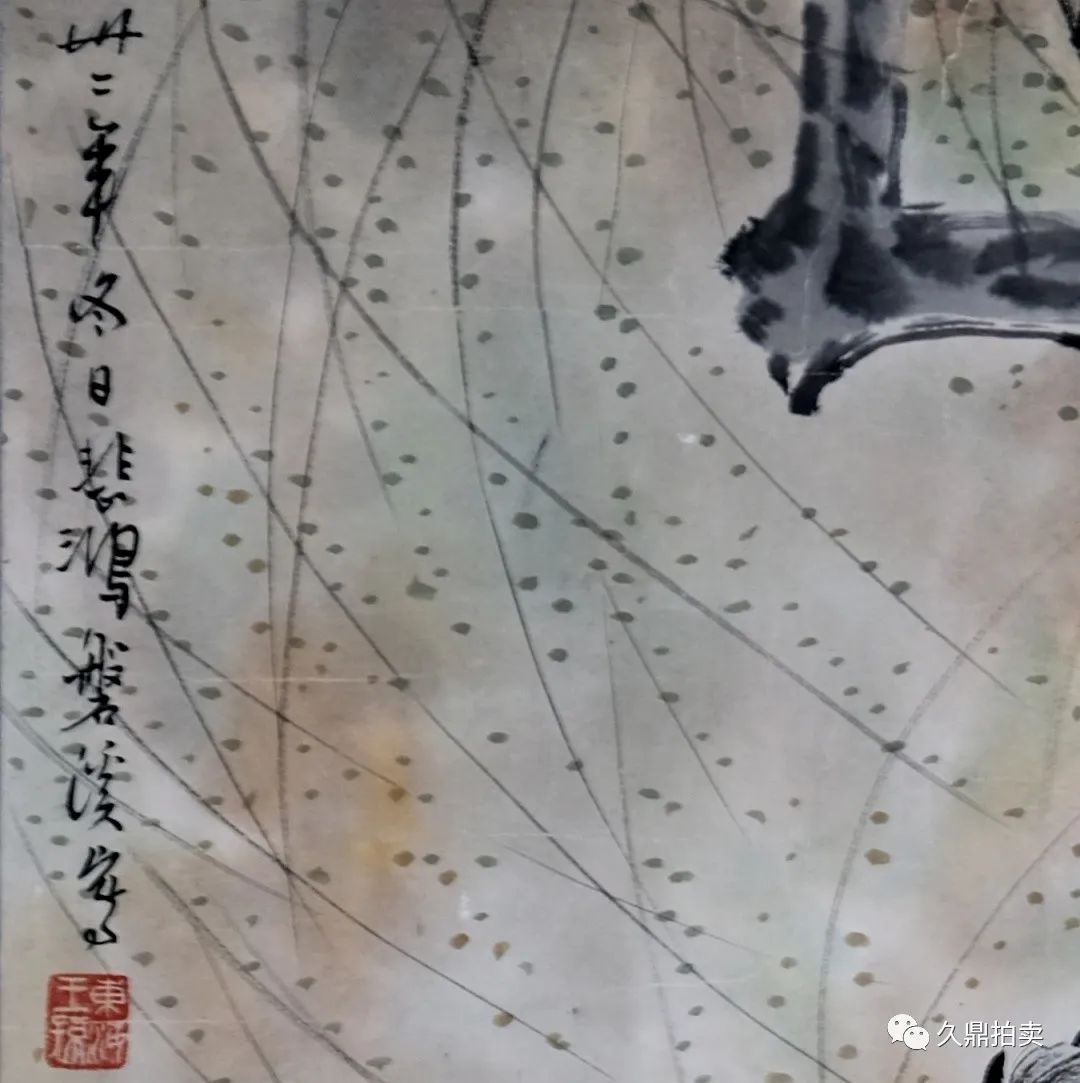 卅二年冬日悲鴻磐溪寫
東海王孫
久鼎拍卖